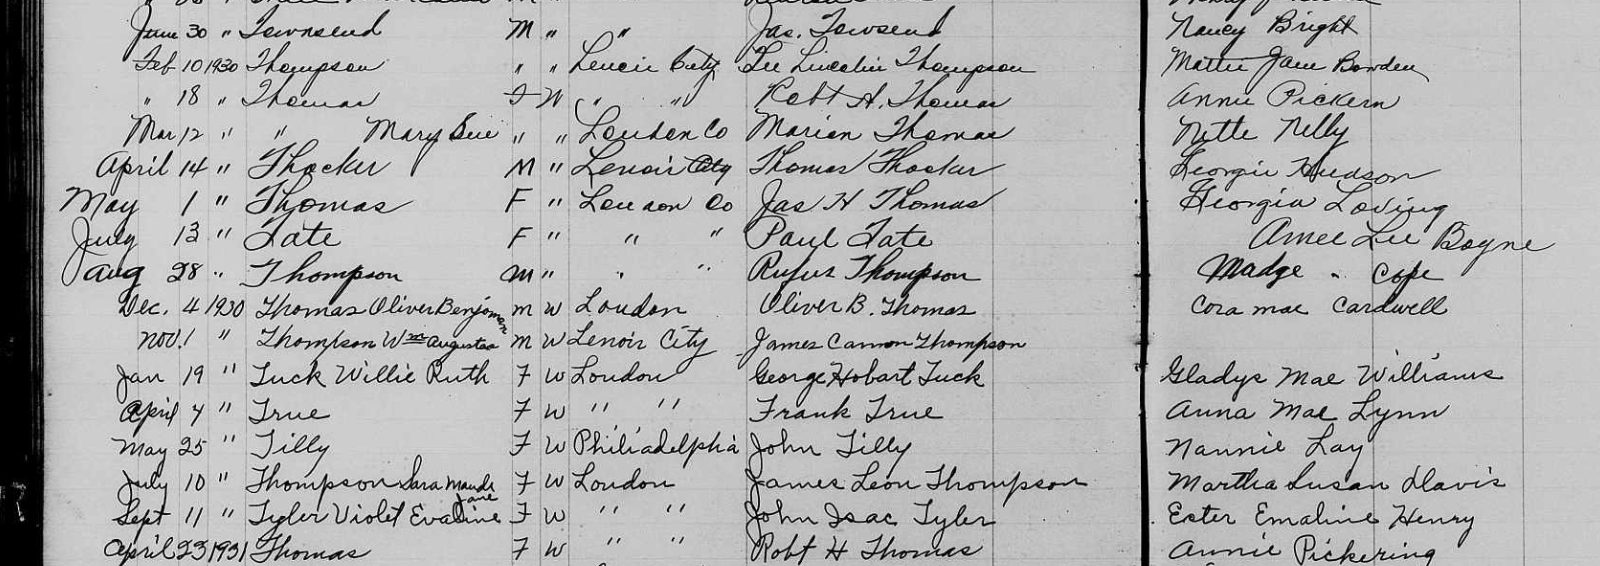 June 30 " Townsend M " " Jas. Towsend Nancy Bright
Feb 10 1930 Thompson " " Lenoir City Lee Lincoln Thompson Mattie Jane Bowden
" 18 " Thomas F W " " Robt A. Thomas Annie Pickern
Mar 12 " " Mary Sue " " Loudon Co Marion Thomas Nette Nelly
April 14 " Thacker M " Lenoir City Thomas Thacker Georgie Hudson
May 1 " Thomas F " Loudon Co Jas H Thomas Georgia Loving
July 13 " Tate F " " " Paul Tate Lee Bogne
Aug 28 " Thompson M " " " Rufus Thompson Madge " Cope
Dec. 4 1930 Thomas Oliver Benjaman M W Loudon Oliver B. Thomas Cora Mae Cardwell
Nov. 1 " Thompson Wm Augustaa M W Lenoir City James Cannon Thompson
Jan 19 " Tuck Willie Ruth F W Loudon George Hobart Tuck Gladys Mae Williams
April 4 " True F W " " Frank True Anna Mae Lynn
May 25 " Tilly F W Philiadelphia John Tilly Nannie Lay
July 10 " Thompson Sara Maude Jane F W Loudon James Leon Thompson Martha Susan Davis
Sept 11 " Tyler Violet Evaline F W " " John Isac Tyler Ester Emaline Henry
April 23 1931 Thomas F W " " Robt H Thomas Annie Pickering